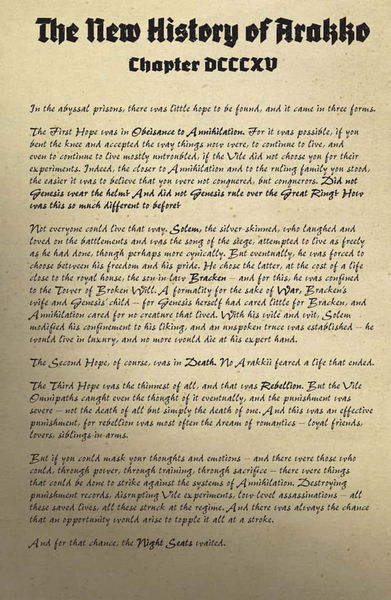 The New History of Arakko
Chapter DCCCXV
In the abyssal prisons, there was little hope to be found, and it came in three forms.
The First Hope was in Obeisance to Annihilation. For it was possible, if you
bent the knee and accepted the way things now were, to continue to live, and
even to continue to live mostly untroubled, if the Vile did not choose you for their
experiments. Indeed, the closer to Annihilation and to the ruling family you stood,
the easier it was to believe that you were not conquered, but conquerors. Did not
Genesis wear the helm? And did not Genesis rule over the Great Ring? How
was this so much different to before?
Not everyone could live that way. Solem, the silver-skinned, who laughed and
loved on the battlements and was the song of the siege, attempted to live as freely
as he had done, though perhaps more cynically. But eventually, he was forced to
choose between his freedom and his pride. He chose the latter, at the cost of a life
close to the royal house, the son-in-law Bracken – and for this, he was confined
to the Tower of Broken Will. A formality for the sake of War, Bracken's
wife and Genesis' child – for Genesis herself had cared little for Bracken, and
Annihilation cared for no creature that lived. With his wile and wit, Solem
modified his confinement to his liking, and an unspoken truce was established – he
would live in luxury, and no more would die at his expert hand.
The Second Hope, of course, was in Death. No Arakkii feared a life that ended.
The Third Hope was the thinnest of all, and that was Rebellion. But the Vile
Omnipaths caught even the thought of it eventually, and the punishment was
severe – not the death of all but simply the death of one. And this was an effective
punishment, for rebellion was most often the dream of romantics – loyal friends,
lovers, siblings-in-arms.
But if you could mask your thoughts and emotions – and there were those who
could, through power, through training, through sacrifice – there were things
that could be done to strike against the systems of Annihilation. Destroying
punishment records, disrupting Vile experiments, low-level assassinations – all
these saved lives, all these struck at the regime. And there was always the chance
that an opportunity would arise to topple it all at a stroke.
And for that chance, the Night Seats waited.